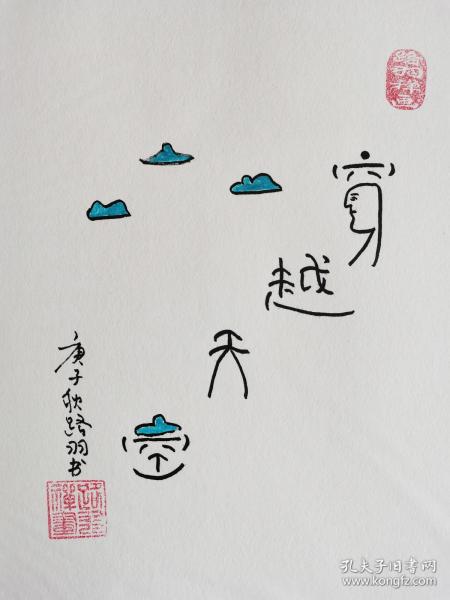 穿越天空
庚子秋路羽书
孔夫子旧书网
www.kongfz.com